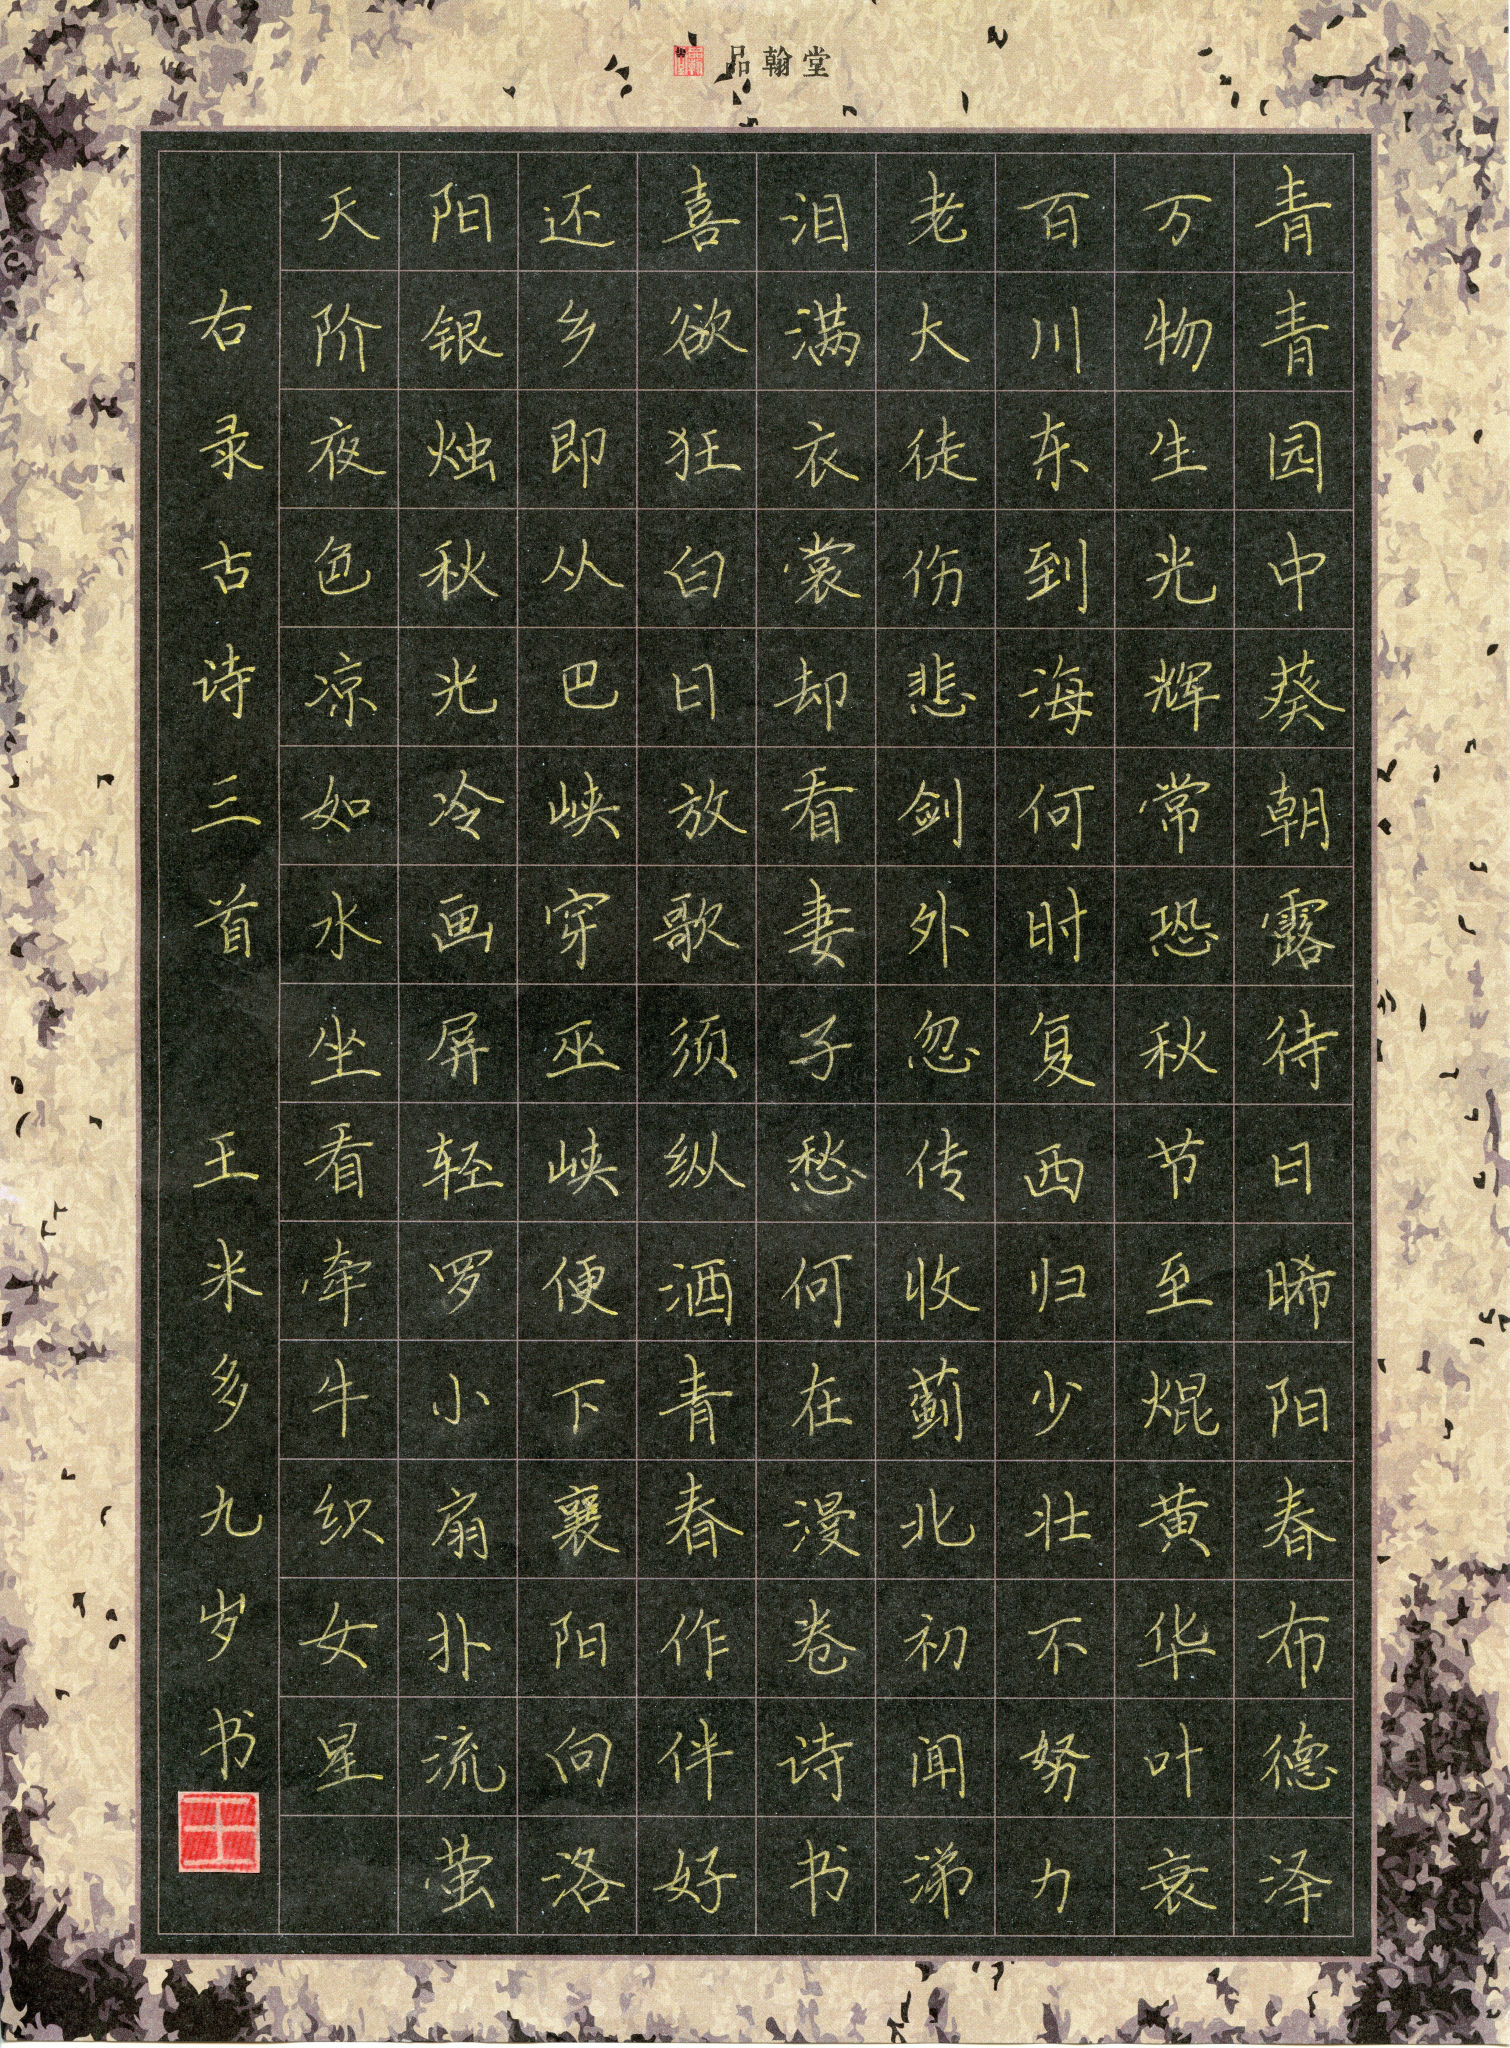 品翰堂
青青园中葵朝露待日晞阳春布德泽
万物生光辉常恐秋节至焜黄华叶衰
百川东到海何时复西归少壮不努力
老大徒伤悲剑外忽传收蓟北初闻涕
泪满衣裳却看妻子愁何在漫卷诗书
喜欲狂白日放歌须纵酒青春作伴好
还乡即从巴峡穿巫峡便下襄阳向洛
阳银烛秋光冷画屏轻罗小扇扑流萤
天阶夜色凉如水坐看牵牛织女星
右录古诗三首 王米多九岁书
王